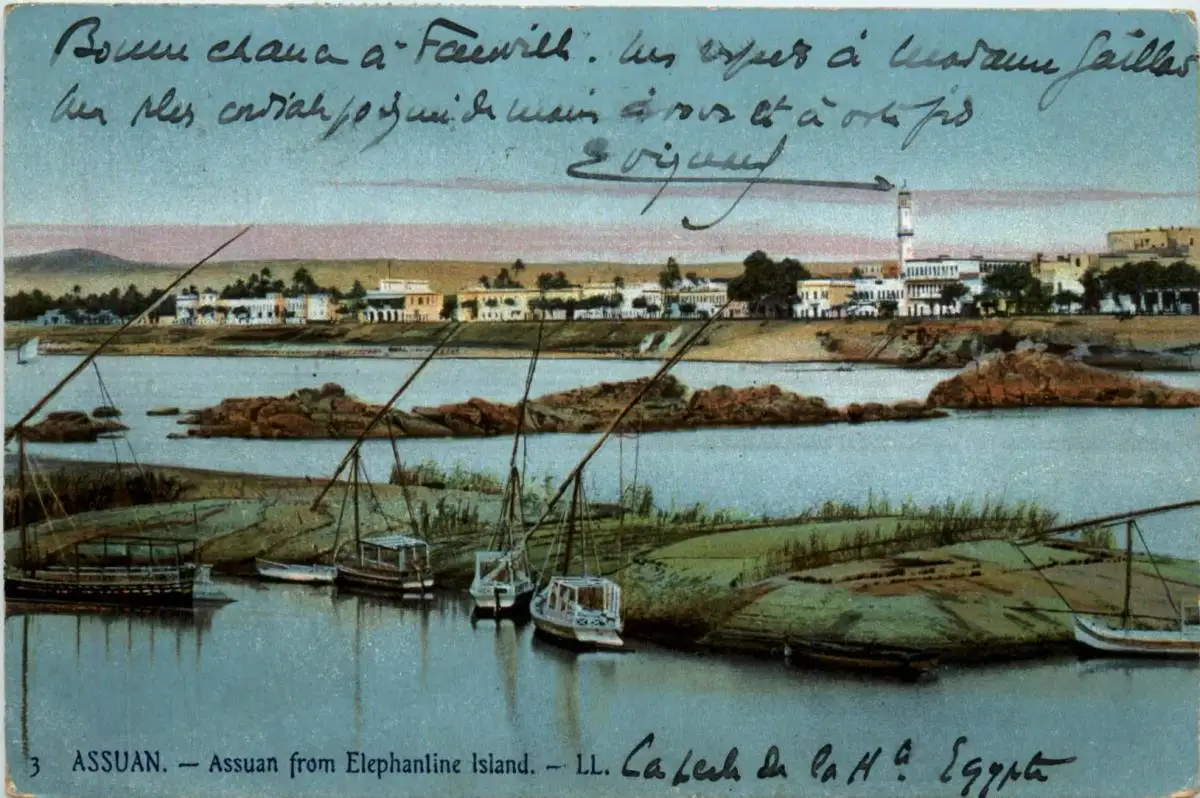 Bonne chance à Farwill. Mes respects à Madame Gaillard
Mes plus cordiales poignées de mains à vous et à vos fils
3 ASSUAN. — Assuan from Elephantine Island. — LL.
La perle de la Hte Egypte